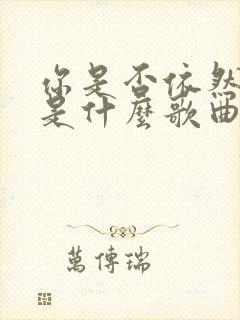 你是否依然
是什麼歌曲
萬傳瑞